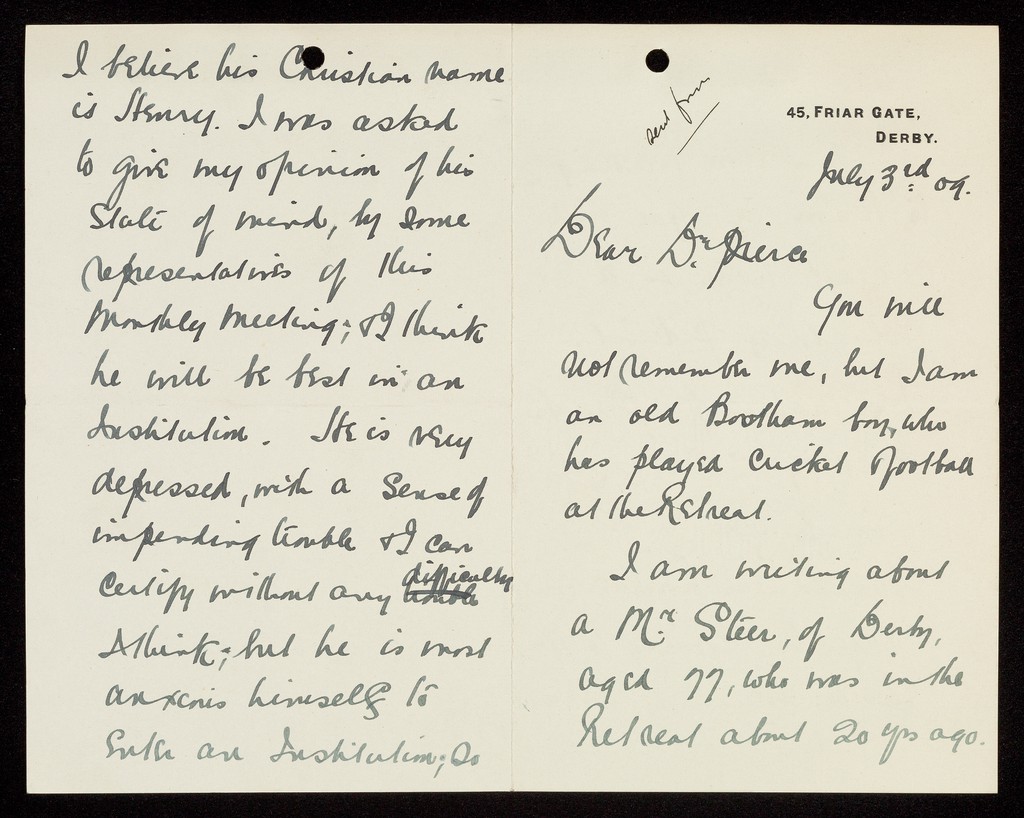 45, FRIAR GATE,
DERBY.
sent form
July 3rd 09.
Dear Dr. Pierce
You will
not remember me, but I am
an old Bootham boy, who
has played cricket & football
at the Retreat.
I am writing about
a Mr. Steer, of Derby,
aged 77, who was in the
Retreat about 20 yrs ago.
I believe his Christian name
is Henry. I was asked
to give my opinion of his
state of mind, by some
representatives of this
Monthly Meeting; & I think
he will be best in an
Institution. He is very
depressed, with a sense of
impending trouble & I can
certify without any trouble difficulty
I think; but he is most
anxious himself to
enter an Institution; so